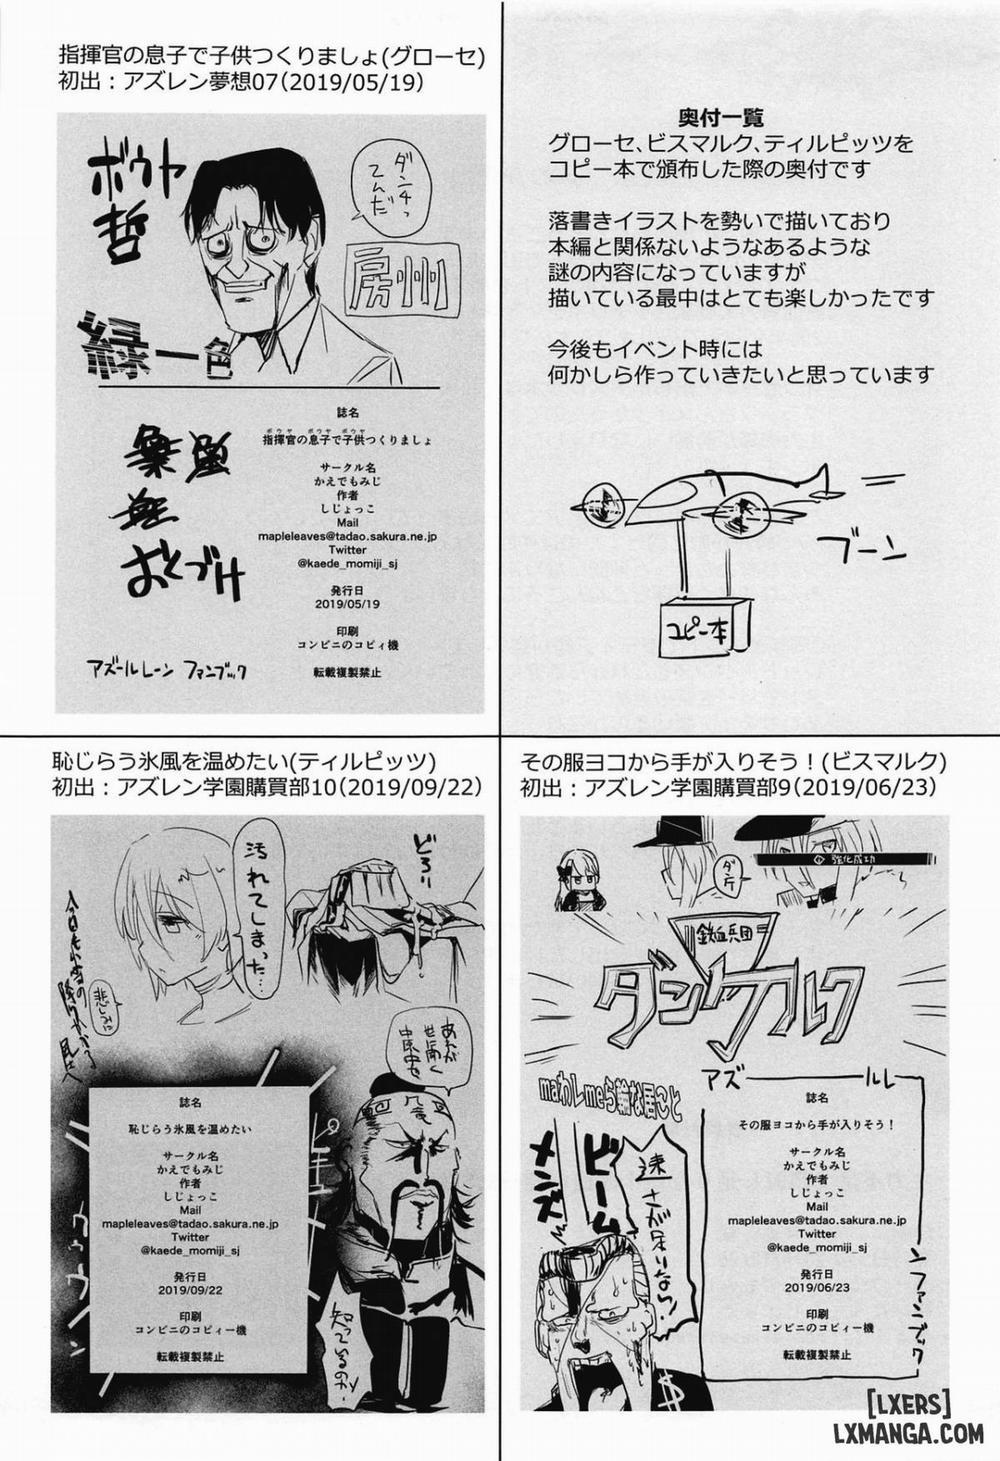 指揮官の息子で子供つくりましょ(グローセ)
初出：アズレン夢想07(2019/05/19)
ボウヤ
哲
ダンチっ
てんだ
房州
緑一色
おとづけ
誌名
指揮官の息子で子供つくりましょ
ボウヤ ボウヤ ボウヤ
サークル名
かえでもみじ
作者
しじょっこ
Mail
mapleleaves@tadao.sakura.ne.jp
Twitter
@kaede_momiji_sj
発行日
2019/05/19
印刷
コンビニのコピィ機
転載複製禁止
アズールレーン ファンブック
奥付一覧
グローセ、ビスマルク、ティルピッツを
コピー本で頒布した際の奥付です
落書きイラストを勢いで描いており
本編と関係ないようなあるような
謎の内容になっていますが
描いている最中はとても楽しかったです
今後もイベント時には
何かしら作っていきたいと思っています
ブーン
コピー本
恥じらう氷風を温めたい(ティルピッツ)
初出：アズレン学園購買部10(2019/09/22)
汚れて
しまった…
どろり
悲しみに
あれが
世に聞く
知っているのか
誌名
恥じらう氷風を温めたい
サークル名
かえでもみじ
作者
しじょっこ
Mail
mapleleaves@tadao.sakura.ne.jp
Twitter
@kaede_momiji_sj
発行日
2019/09/22
印刷
コンビニのコピィー機
転載複製禁止
その服ヨコから手が入りそう！(ビスマルク)
初出：アズレン学園購買部9(2019/06/23)
強化成功
鉄血兵団
ダンケルク
アズールレーン ファンブック
maわしmeら輪な居こと
メンズ
ビーム
速さが足りない！
誌名
その服ヨコから手が入りそう！
サークル名
かえでもみじ
作者
しじょっこ
Mail
mapleleaves@tadao.sakura.ne.jp
Twitter
@kaede_momiji_sj
発行日
2019/06/23
印刷
コンビニのコピィー機
転載複製禁止
$
[LXERS]
LXMANGA.COM